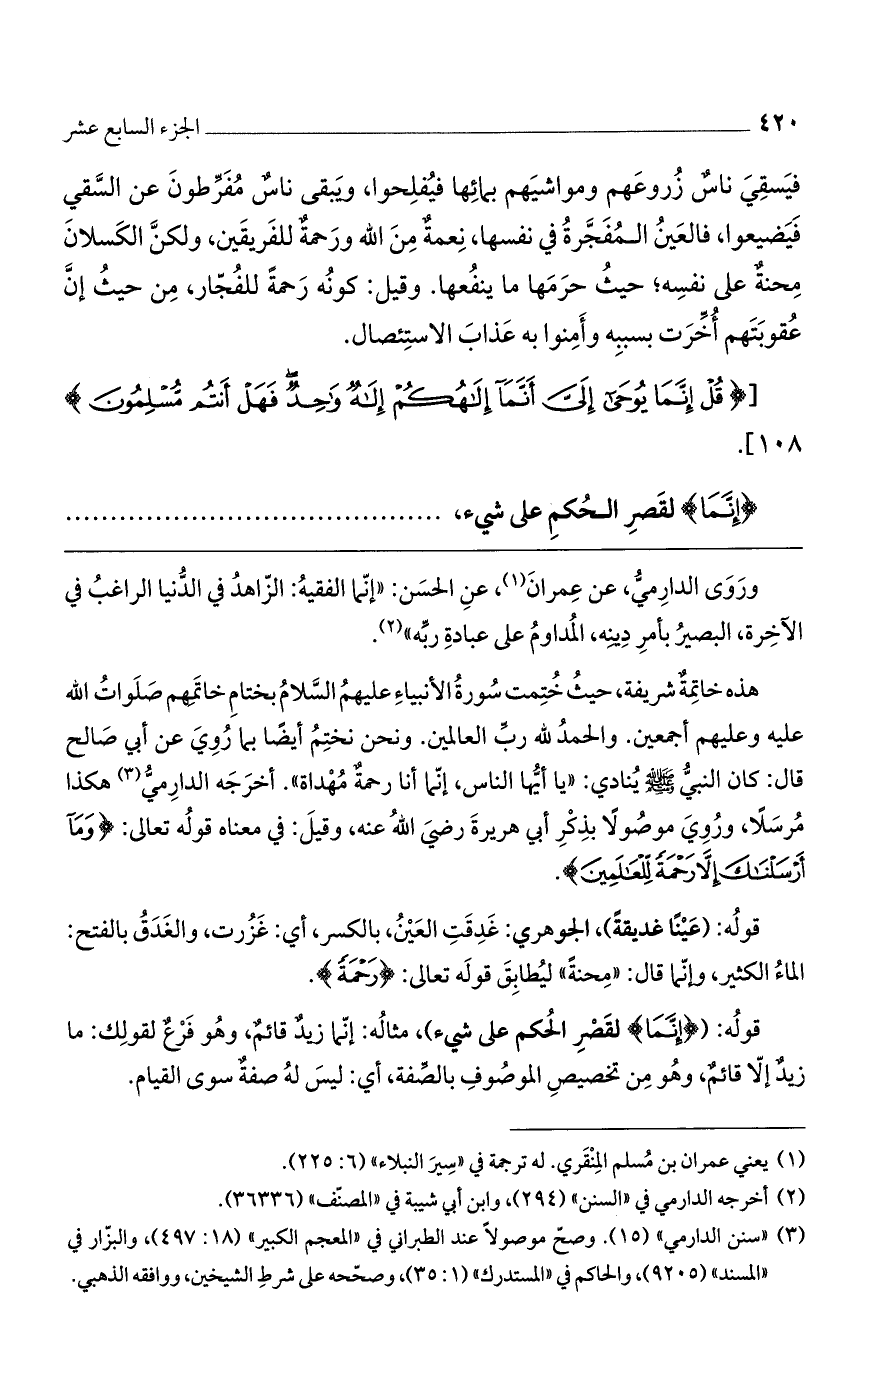 ٤٢٠ الجزء السابع عشر
فيَسقِيَ ناسٌ زُروعَهم ومواشيَهم بمائِها فيُفلِحوا، ويَبقى ناسٌ مُفَرِّطونَ عن السَّقي
فَيَضيعوا، فالعَينُ الـمُفَجَّرةُ في نفسها، نِعمةٌ مِنَ الله ورَحمةٌ للفريقَين، ولكنَّ الكَسلانَ
مِحنةٌ على نفسِه؛ حيثُ حرَمَها ما ينفُعها. وقيل: كونُه رَحمةً للفُجّار، مِن حيثُ إنَّ
عُقوبَتَهم أُخِّرَت بسببِه وأَمِنوا به عَذابَ الاستِئصال.
[﴿قُلْ إِنَّمَا يُوحَىٰٓ إِلَىَّ أَنَّمَآ إِلَٰهُكُمْ إِلَٰهٌ وَٰحِدٌ ۖ فَهَلْ أَنتُم مُّسْلِمُونَ﴾
١٠٨].
﴿إِنَّمَا﴾ لقَصرِ الـحُكمِ على شيء، ........................................
ورَوَى الدارِميُّ، عن عِمرانَ(١)، عنِ الحَسَن: «إنّما الفقيهُ: الزّاهدُ في الدُّنيا الراغبُ في
الآخِرة، البصيرُ بأمرِ دِينِه، المُداومُ على عبادةِ ربِّه»(٢).
هذه خاتِمةٌ شريفة، حيثُ خُتِمت سُورةُ الأنبياءِ عليهمُ السَّلامُ بختامِ خاتَمِهم صَلَواتُ الله
عليه وعليهم أجمعين. والحمدُ لله ربِّ العالمين. ونحن نختِمُ أيضًا بما رُوِيَ عن أبي صَالح
قال: كان النبيُّ ﷺ يُنادي: «يا أيُّها الناس، إنّما أنا رحمةٌ مُهْداة». أخرَجَه الدارِميُّ(٣) هكذا
مُرسَلًا، ورُوِيَ موصُولًا بذِكْرِ أبي هريرةَ رضيَ اللهُ عنه، وقيلَ: في معناه قولُه تعالى: ﴿وَمَآ
أَرْسَلْنَٰكَ إِلَّا رَحْمَةً لِّلْعَٰلَمِينَ﴾.
قولُه: (عَيْنًا غديقةً)، الجوهري: غَدِقَتِ العَيْنُ، بالكسر، أي: غَزُرت، والغَدَقُ بالفتح:
الماءُ الكثير، وإنّما قال: «مِحنةً» ليُطابِقَ قولَه تعالى: ﴿رَحْمَةً﴾.
قولُه: (﴿إِنَّمَا﴾ لقَصْرِ الحُكم على شيء)، مثالُه: إنّما زيدٌ قائمٌ، وهُو فَرْعٌ لقولِك: ما
زيدٌ إلّا قائمٌ، وهُو مِن تخصيصِ الموصُوفِ بالصِّفة، أي: ليسَ لهُ صفةٌ سوى القيام.
(١) يعني عمران بن مُسلم المِنْقَري. له ترجمة في «سِيَر النبلاء» (٦: ٢٢٥).
(٢) أخرجه الدارمي في «السنن» (٢٩٤)، وابن أبي شيبة في «المصنّف» (٣٦٣٣٦).
(٣) «سنن الدارمي» (١٥). وصحّ موصولاً عند الطبراني في «المعجم الكبير» (١٨: ٤٩٧)، والبزّار في
«المسند» (٩٢٠٥)، والحاكم في «المستدرك» (١: ٣٥)، وصحّحه على شرطِ الشيخين، ووافقه الذهبي.